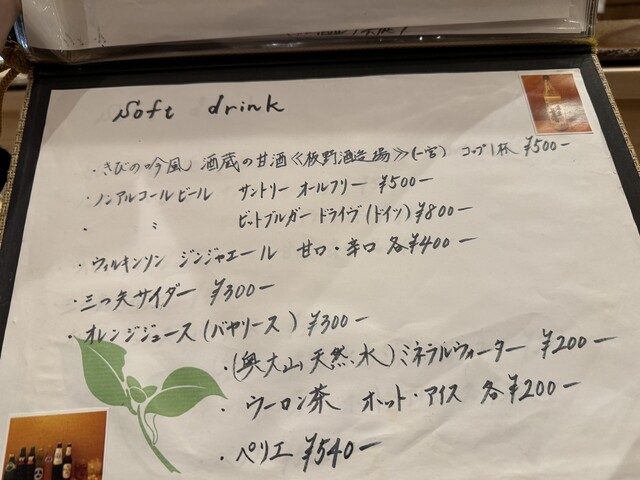 Soft drink
・きびの吟風 酒蔵の甘酒《板野酒造場》(一宮) コップ1杯 ¥500ー
・ノンアルコールビール サントリー オールフリー ¥500ー
・ 〃 ビットブルガー ドライヴ(ドイツ) ¥800ー
・ウィルキンソン ジンジャエール 甘口・辛口 各¥400ー
・三ツ矢サイダー ¥300ー
・オレンジジュース(バヤリース) ¥300ー
・(奥大山天然水)ミネラルウォーター ¥200ー
・ウーロン茶 ホット・アイス 各¥200ー
・ペリエ ¥540ー